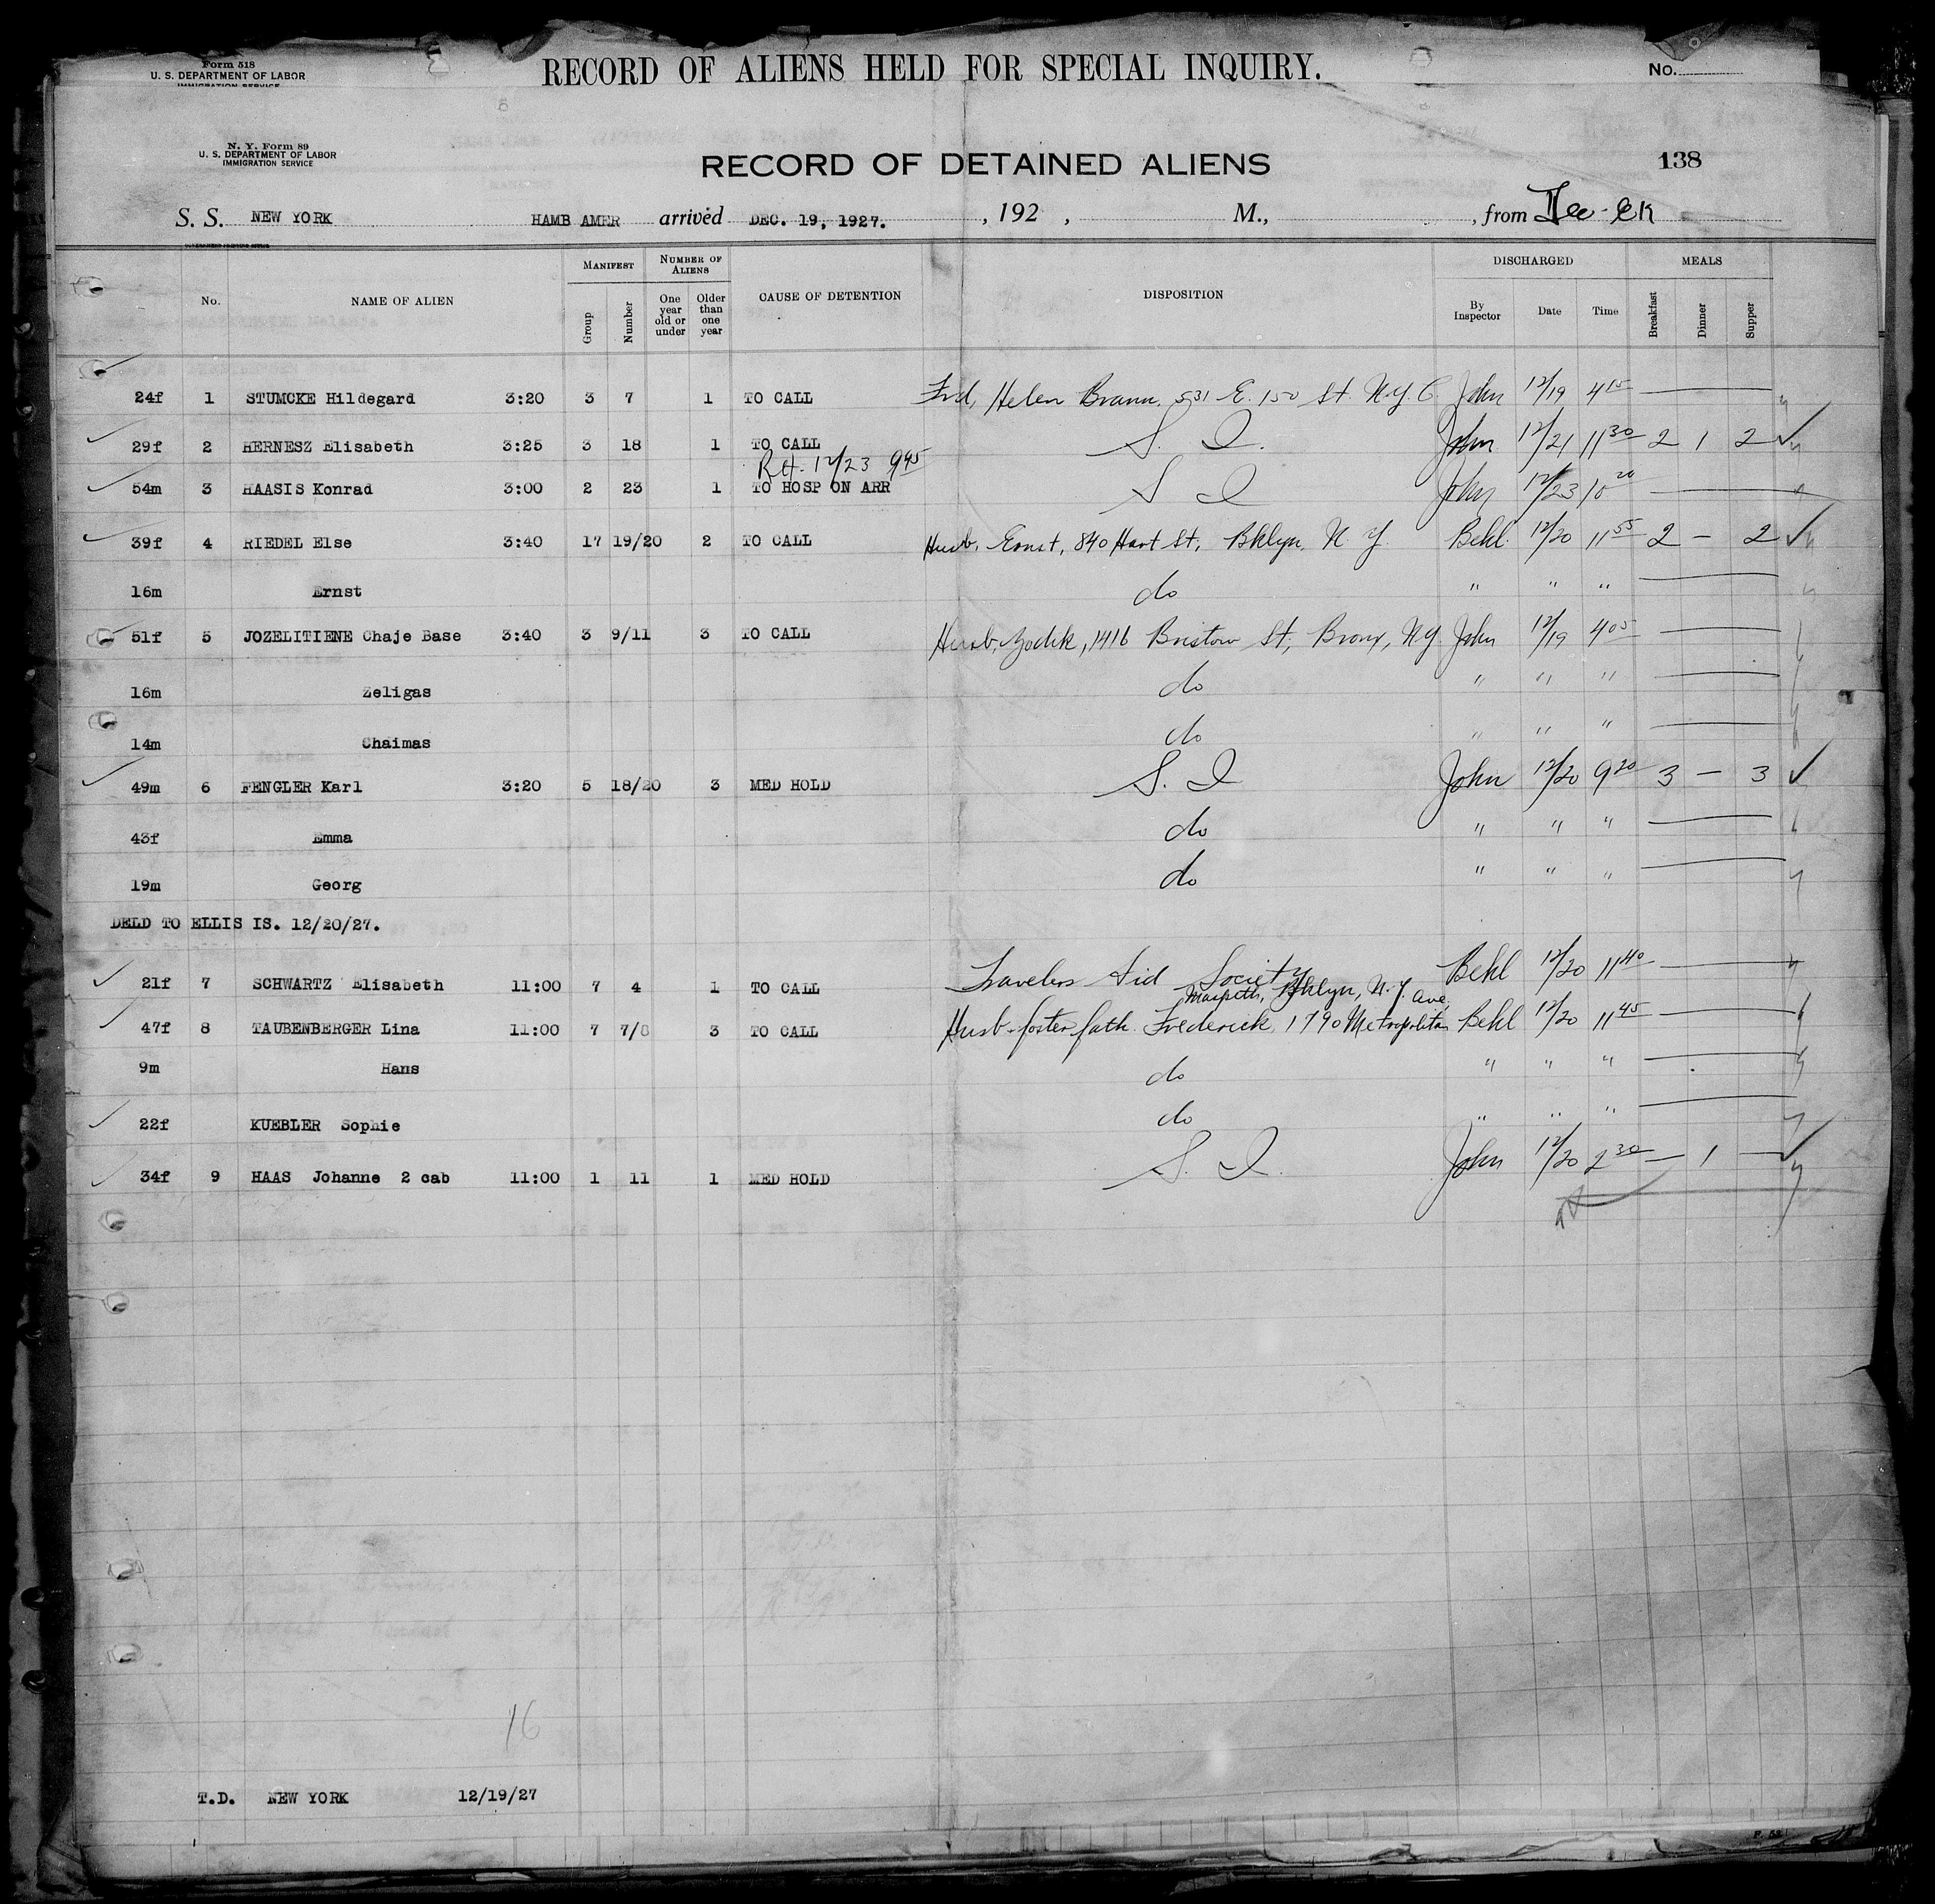 Form 518
U. S. DEPARTMENT OF LABOR
IMMIGRATION SERVICE
RECORD OF ALIENS HELD FOR SPECIAL INQUIRY.
No.
N. Y. Form 89
U. S. DEPARTMENT OF LABOR
IMMIGRATION SERVICE
RECORD OF DETAINED ALIENS
138
S. S. NEW YORK HAMB AMER arrived DEC. 19, 1927. , 192 , M., , from
No. NAME OF ALIEN MANIFEST Group Number NUMBER OF ALIENS One year old or under Older than one year CAUSE OF DETENTION DISPOSITION DISCHARGED By Inspector Date Time MEALS Breakfast Dinner Supper
24f 1 STUMCKE Hildegard 3:20 3 7 1 TO CALL Frd, Helen Braun, 531 E. 150 St. N.Y.C. John 12/19 4 15
29f 2 HERNESZ Elisabeth 3:25 3 18 1 TO CALL S. I. John 12/21 11 30 2 1 2
RH. 12/23 9 45
54m 3 HAASIS Konrad 3:00 2 23 1 TO HOSP ON ARR S I John 12/23 10 20
39f 4 RIEDEL Else 3:40 17 19/20 2 TO CALL Husb, Ernst, 840 Hart St, Bklyn, N. Y. Behl 12/20 11 55 2 – 2
16m Ernst do " " "
51f 5 JOZELITIENE Chaje Base 3:40 3 9/11 3 TO CALL Husb, Zodik, 1416 Bristow St, Bronx, N.Y. John 12/19 4 05
16m Zeligas do " " "
14m Chaimas do " " "
49m 6 FENGLER Karl 3:20 5 18/20 3 MED HOLD S. I John 12/20 9 20 3 – 3
43f Emma do " " "
19m Georg do " " "
DELD TO ELLIS IS. 12/20/27.
21f 7 SCHWARTZ Elisabeth 11:00 7 4 1 TO CALL Travelers Aid Society Behl 12/20 11 40
Maspeth, Bklyn, N.Y. Ave
47f 8 TAUBENBERGER Lina 11:00 7 7/8 3 TO CALL Husb-foster fath. Frederick, 1790 Metropolitan Behl 12/20 11 45
9m Hans do " " "
22f KUEBLER Sophie do " " "
34f 9 HAAS Johanne 2 cab 11:00 1 11 1 MED HOLD S. I. John 12/20 2 30 – 1 –
16
T.D. NEW YORK 12/19/27